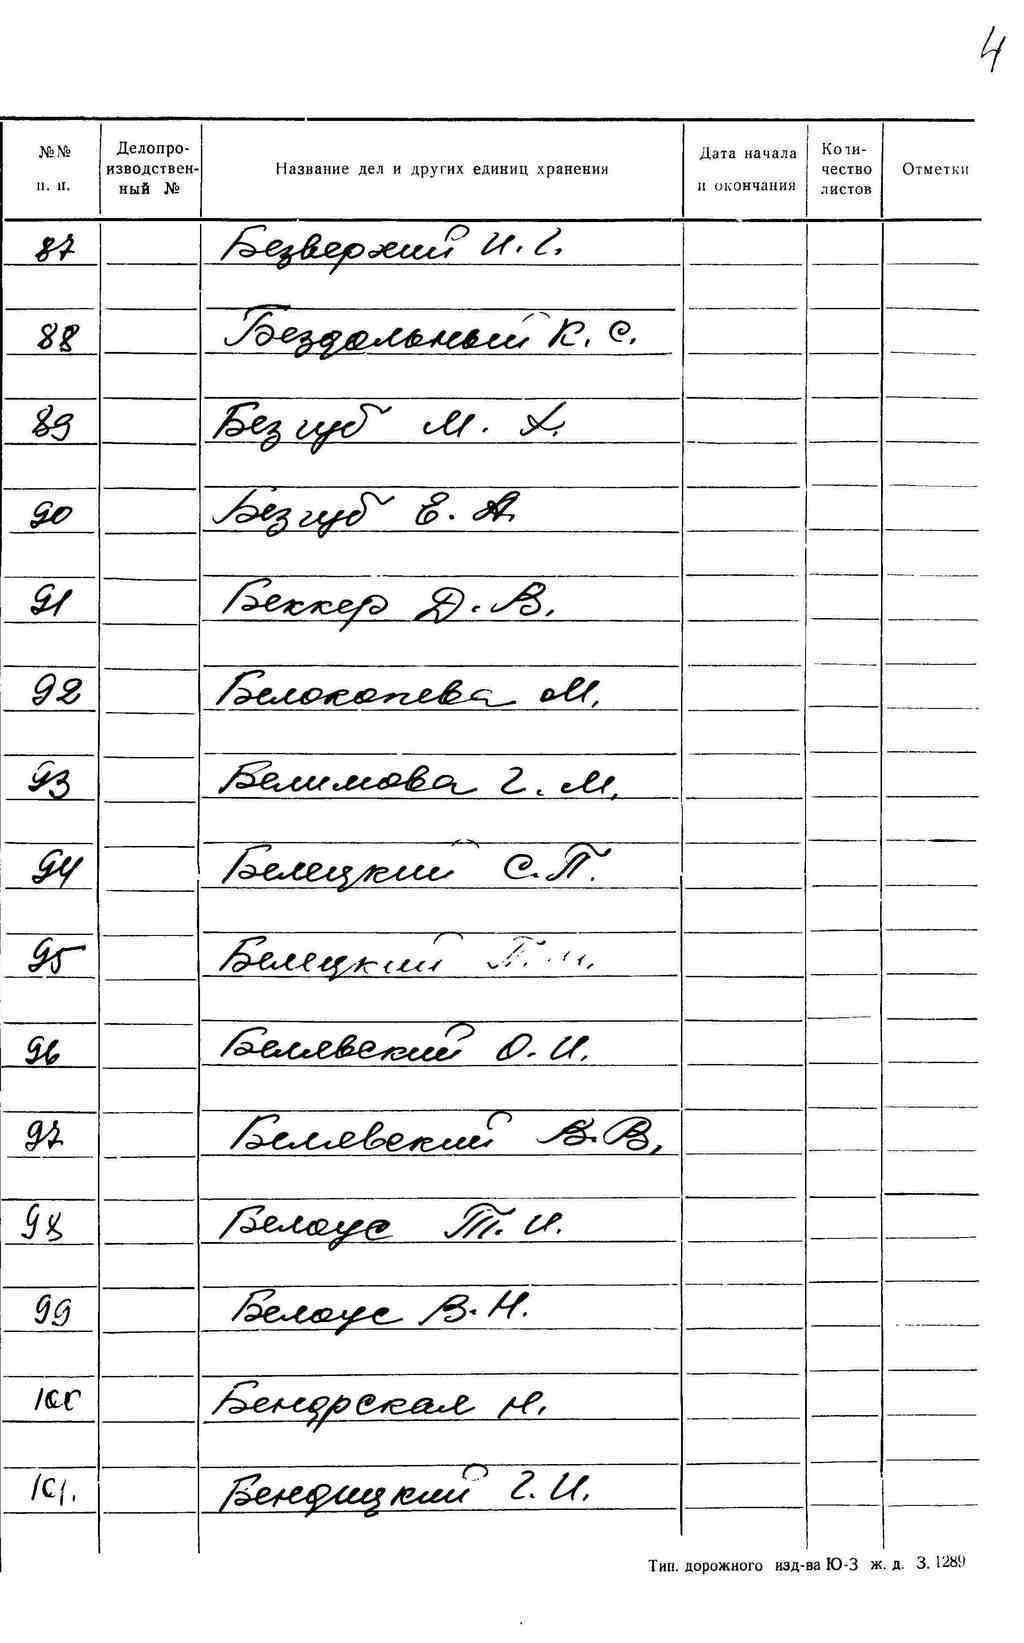 4
№№ п. п. Делопроизводственный № Название дел и других единиц хранения Дата начала и окончания Количество листов Отметки
87 Безверхий И. Г.
88 Бездольный К. С.
89 Безгуб М. Х.
90 Безгуб Е. А.
91 Беккер Д. В.
92 Белокопева М.
93 Белимова Г. М.
94 Белецкий С. П.
95 Белецкий П.
96 Белявский О. И.
97 Белявский В. В.
98 Белоус Т. И.
99 Белоус В. Н.
100 Бендрская Н.
101. Бендицкий Г. И.
Тип. дорожного изд-ва Ю-З ж. д. З. 1289